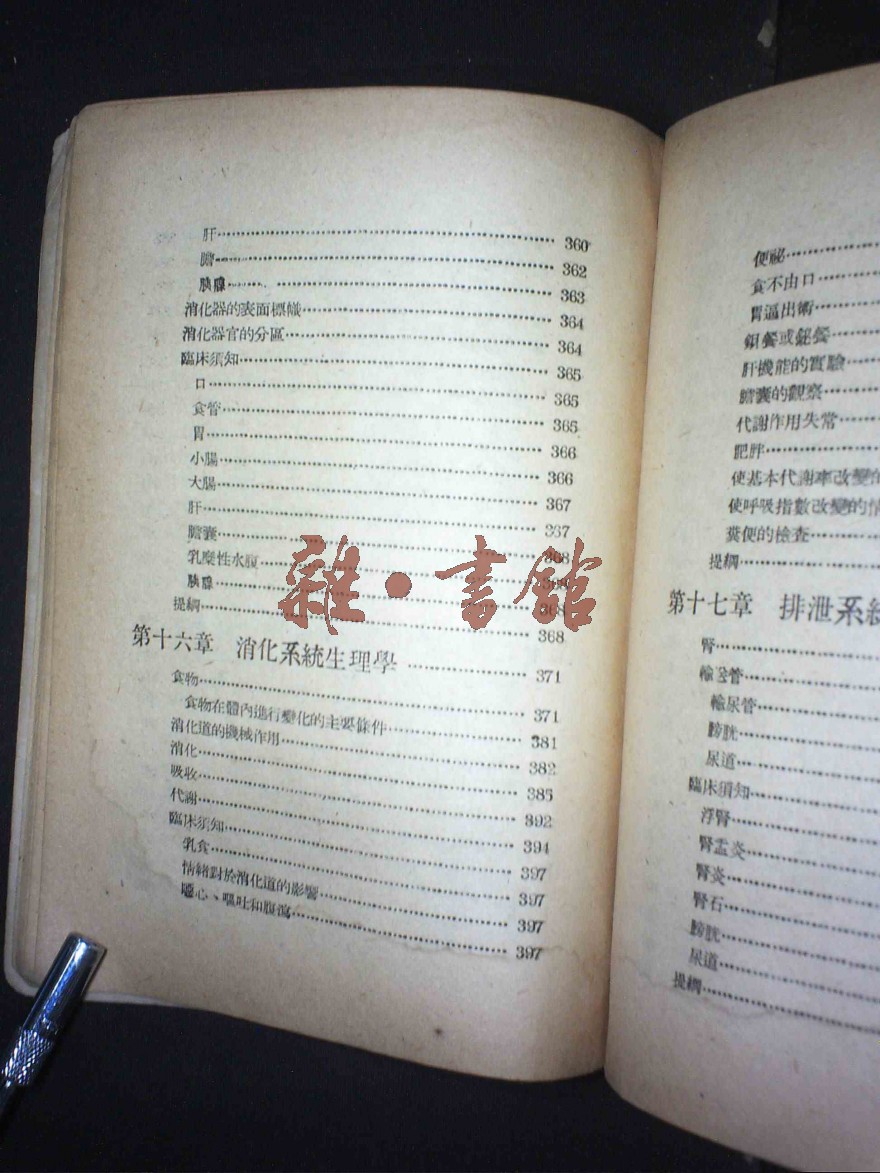 肝 360
膽 362
胰腺 363
消化器的表面標幟 364
消化器官的分區 364
臨床須知 365
口 365
食管 365
胃 366
小腸 366
大腸 367
肝 367
膽囊 368
乳糜性水腹 368
胰腺 368
提綱 368
第十六章 消化系統生理學 371
食物 371
食物在體內進行變化的主要條件 381
消化道的機械作用 382
消化 385
吸收 392
代謝 394
臨床須知 397
乳食 397
情緒對於消化道的影響 397
噁心、嘔吐和腹瀉 397
雜·書館
便祕
食不由口
胃逼出術
鋇餐或鉍餐
肝機能的實驗
膽囊的觀察
代謝作用失常
肥胖
使基本代謝率改變的
使呼吸指數改變的情
糞便的檢查
提綱
第十七章 排泄系統
腎
輸尿管
膀胱
尿道
臨床須知
浮腎
腎盂炎
腎炎
腎石
膀胱
尿道
提綱